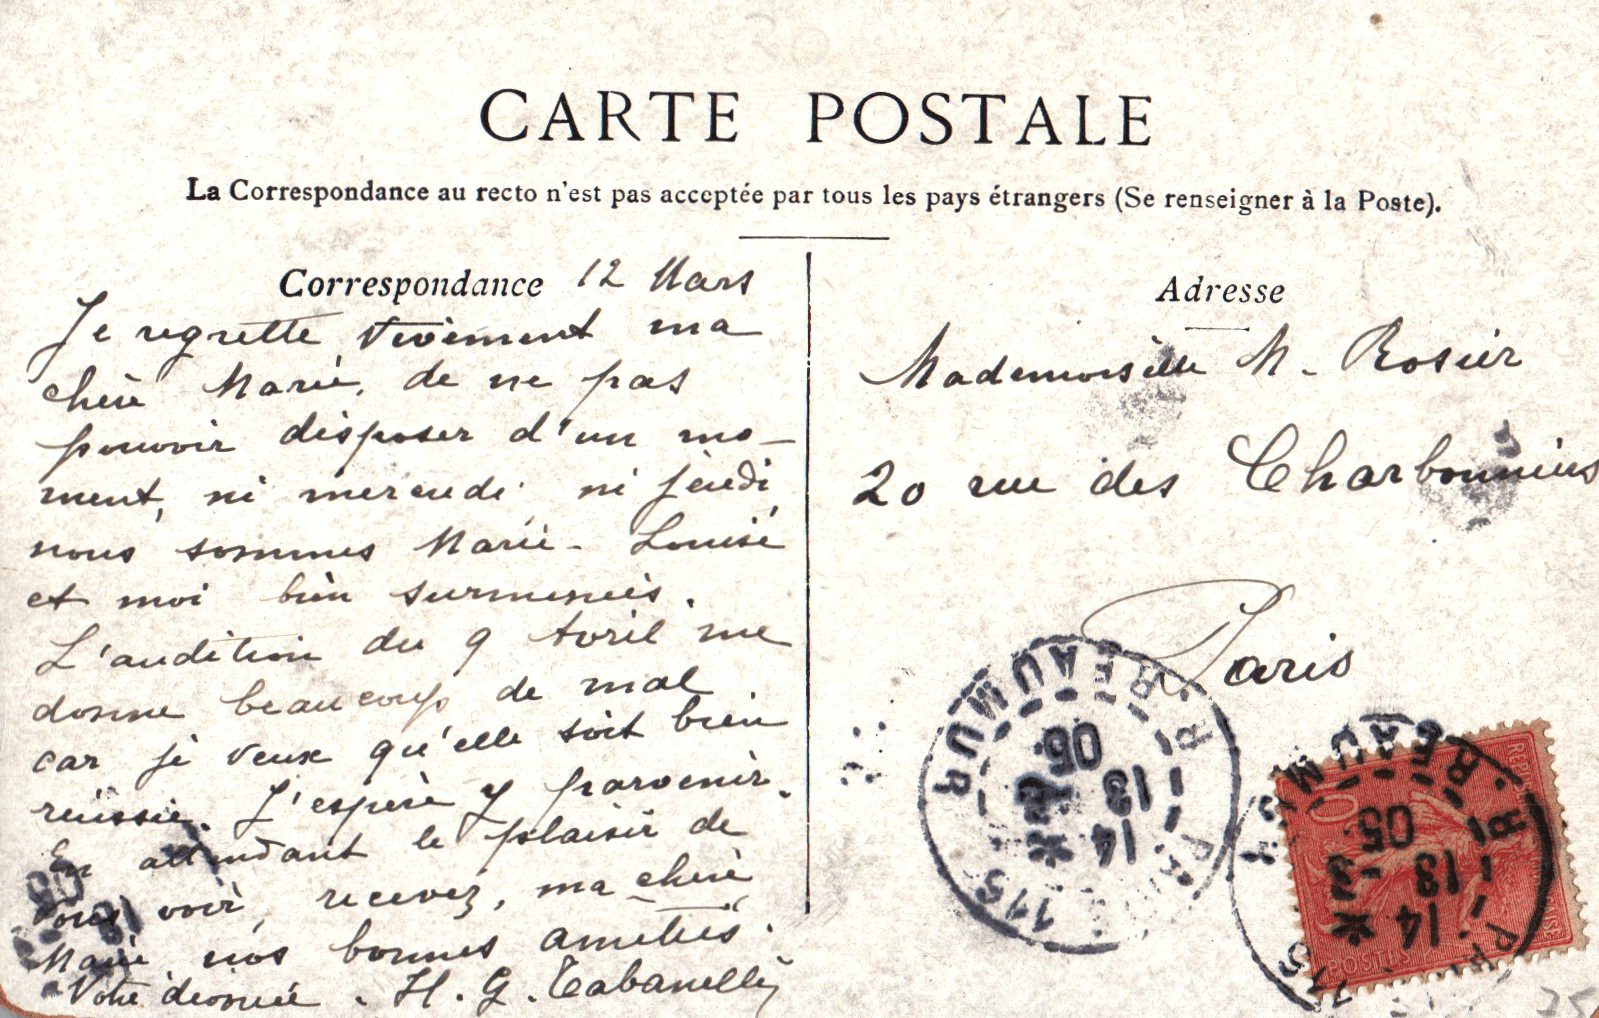 CARTE POSTALE
La Correspondance au recto n'est pas acceptée par tous les pays étrangers (Se renseigner à la Poste).
Correspondance 12 Mars
Je regrette vivement ma
chère Marie, de ne pas
pouvoir disposer d'un mo-
ment, ni mercredi ni jeudi,
nous sommes Marie-Louise
et moi bien surmenées.
L'audition du 9 Avril me
donne beaucoup de mal
car je veux qu'elle soit bien
réussie. J'espère y parvenir.
En attendant le plaisir de
vous voir, recevez, ma chère
Marie nos bonnes amitiés.
Votre dévouée. H. G. Tabanelli
Adresse
Mademoiselle M. Rosier
20 rue des Charbonniers
Paris
PARIS 115 R. REAUMUR
14
13 - 3
05
PARIS 115 R. REAUMUR
14
13 - 3
05
10
POSTES